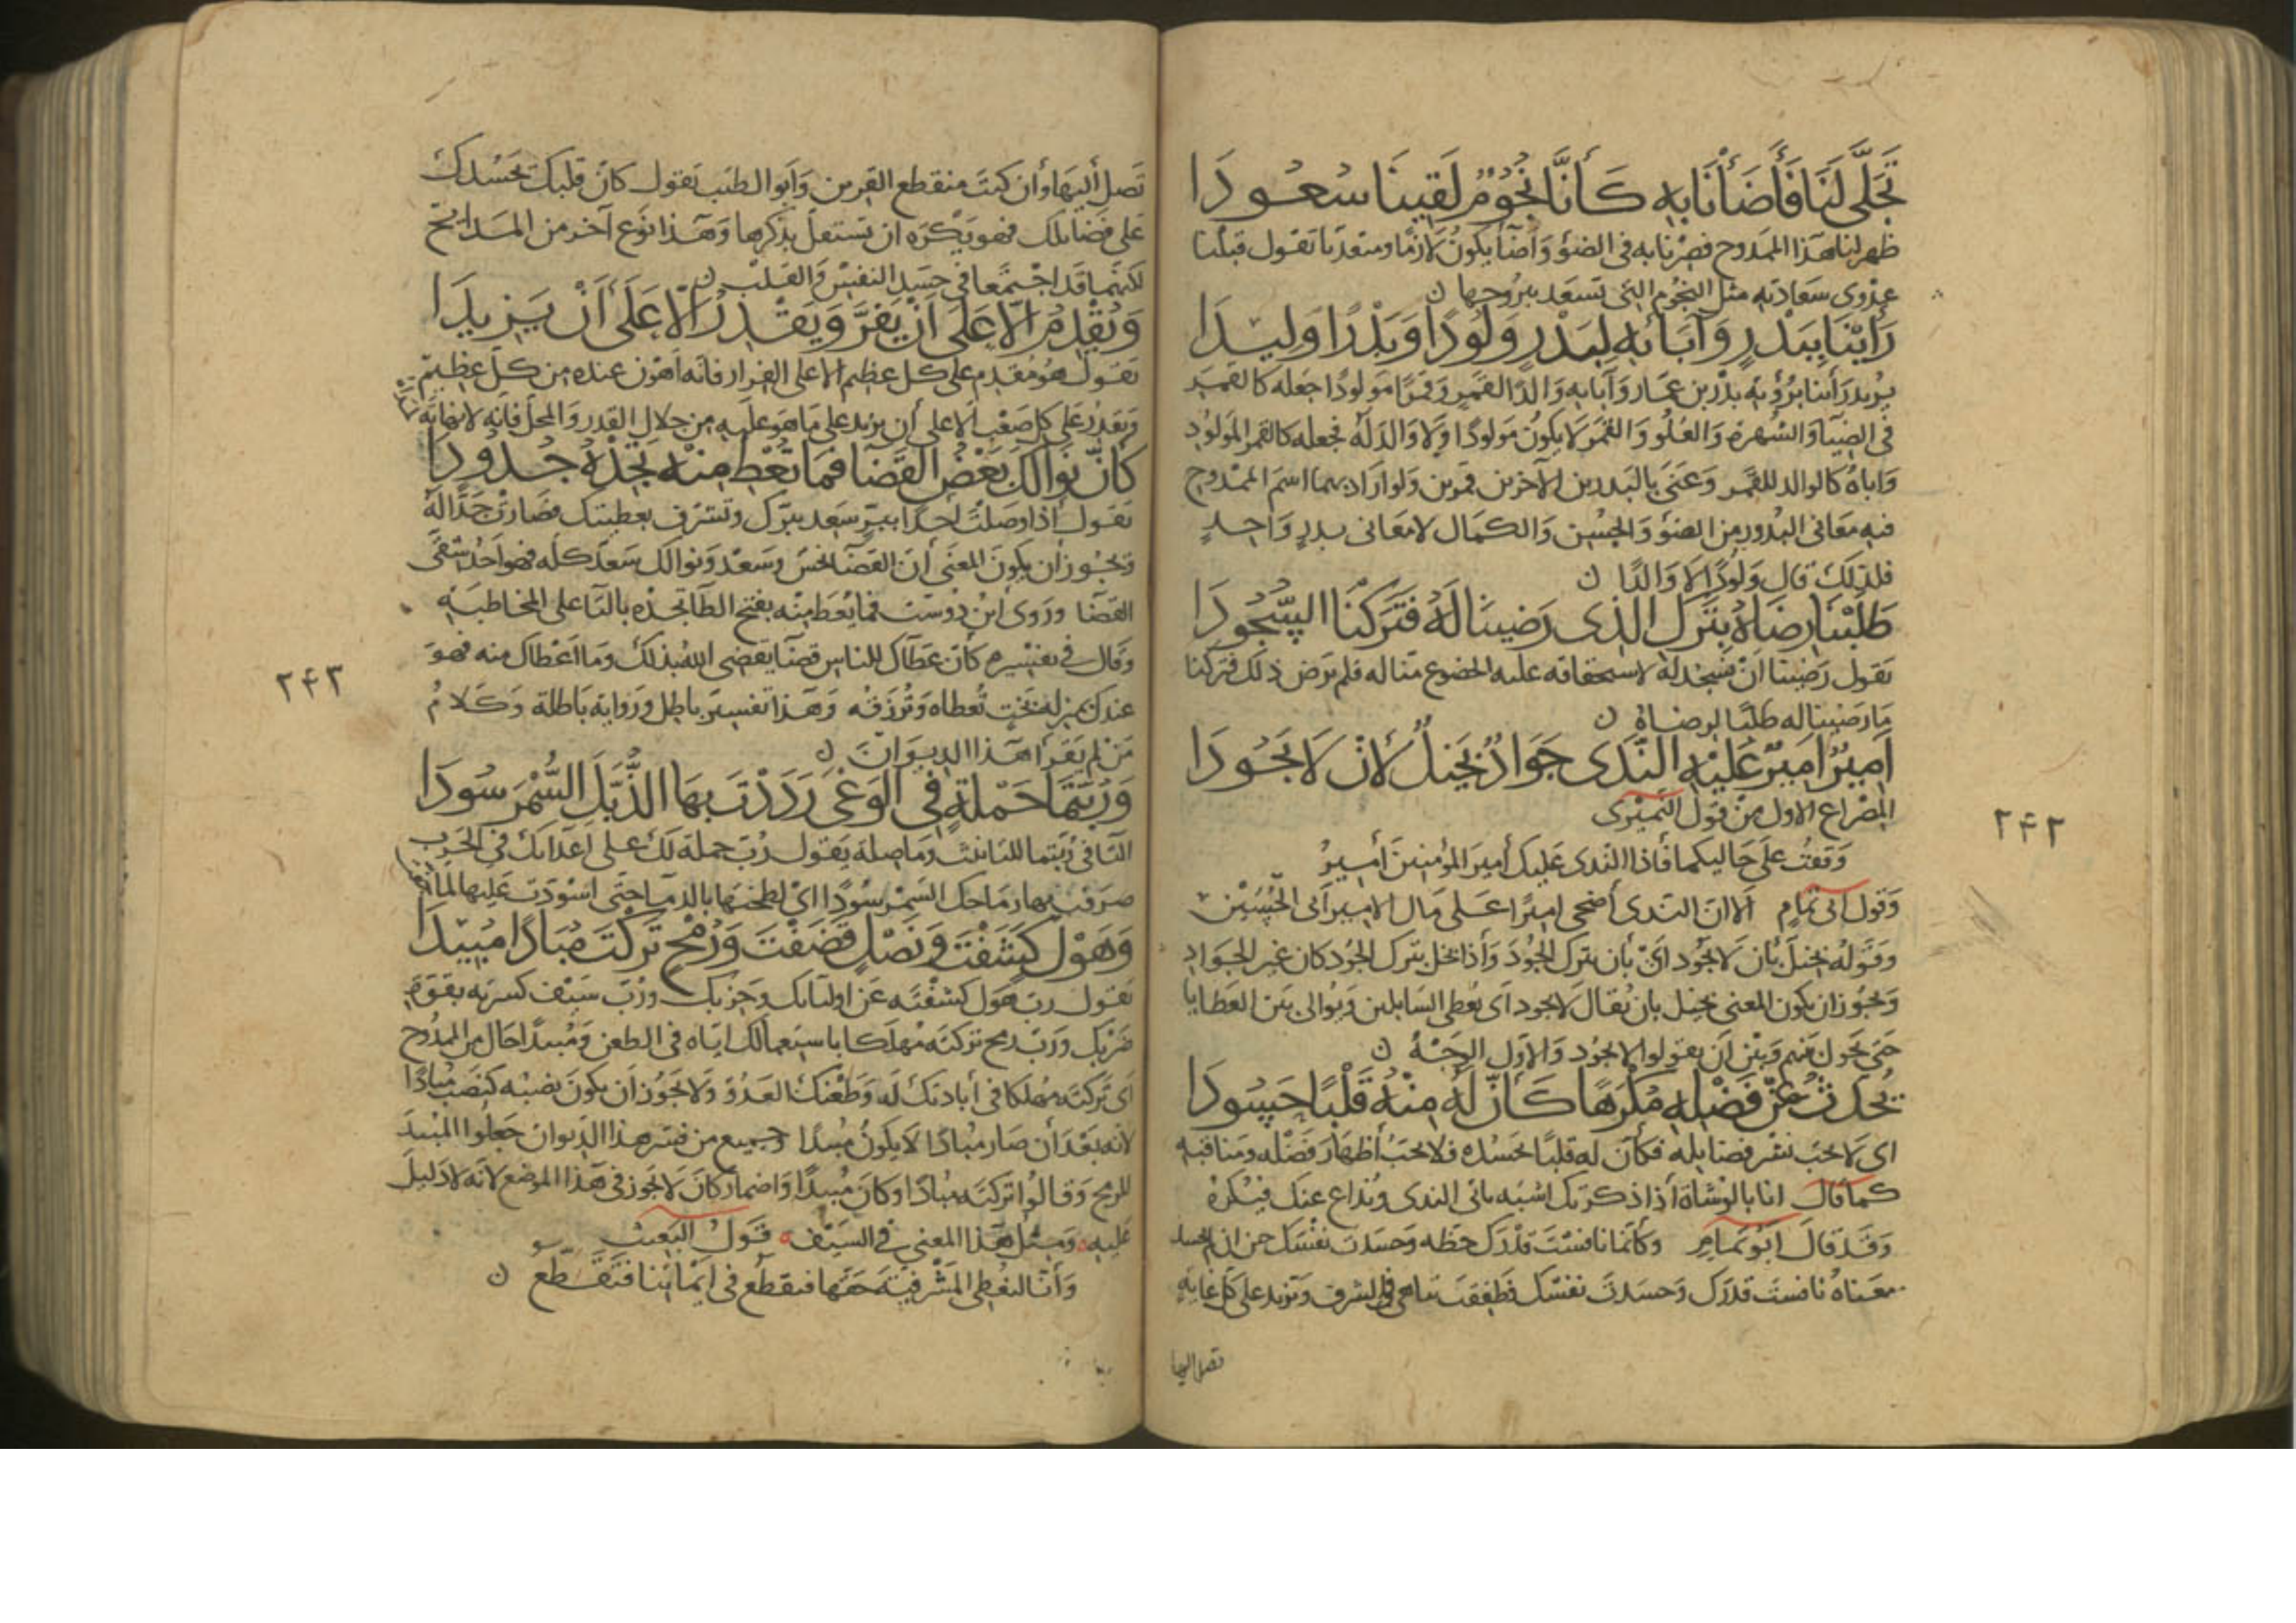 تَجَلَّى لَنَا فَأَضَأْنَا بِهِ كَأَنَّا نُجُومٌ لَقِينَا سُعُودَا
ظهر لنا هذا الممدوح فصرنا به في الضوء وأضاء يكون لازما ومتعديا تقول قبلنا
عدوى سعادته مثل النجوم التي تسعد ببروجها ن
رَأَيْنَا بِبَدْرٍ وَآبَائِهِ لِبَدْرٍ وَلُودًا وَبَدْرًا وَلِيدَا
يريد رأينا برؤية بدر بن عمار وآبايه والدا لقمر وقمرا مولودا جعله كالقمر
في الضياء والشهرة والعلو والقمر لا يكون مولودا ولا والد له فجعله كالقمر المولود
واباه كالوالد للقمر وعنى بالبدرين الآخرين قمرين ولو اراد بهما اسم الممدوح
فيه معاني البدور من الضوء والحسن والكمال لا معاني بدر واحد
فلذلك قال ولودا لا والدا ن
طَلَبْنَا رِضَاهُ بِتَرْكِ الَّذِى رَضِينَا لَهُ فَتَرَكْنَا السُّجُودَا
تقول رضينا ان نسجد له لاستحقاقه عليه الخضوع منا له فلم يرض ذلك فتركنا
ما رضينا له طلبا لرضاه ن
أَمِيرٌ أَمِيرٌ عَلَيْهِ النَّدَى جَوَادٌ بَخِيلٌ لِأَنْ لَا يَجُودَا
المصراع الاول من قول النميرى
وقفت على حاليكما فاذا الندى عليك أمير المؤمنين أمير
وقول ابى تمام الا ان الندى أضحى اميرا على مال الامير أبى الحسين
وقوله بخيل بان لا يجود اى بان يترك الجود واذا بخل بترك الجود كان غير الجواد
ويجوز ان يكون المعنى بخيل بان يقال لا يجود اى يعطى السايلين ويوالى بين العطايا
حتى يحول بينهم وبين ان يقولوا لا يجود والاول الوجه ن
يُحَدَّثُ عَنْ فَضْلِهِ مُكْرَهًا كَأَنَّ لَهُ مِنْهُ قَلْبًا حَسُودَا
اى لا يحب نشر فضايله فكأن له قلبا يحسده فلا يحب أظهار فضله ومناقبه
كما قال انا بالوشاة أذا ذكرتك اشبه ياتى الندى ويذاع عنك فيكره
وقد قال ابو تمام وكأنما نافست قدرك حظه وحسدت نفسك حين ان لم تحسد
معناه نافست قدرك وحسدت نفسك فطفقت تباهى فى الشرف وتزيد على كل غاية
تصل اليها
٢٤٢
تصل أليها وان كنت منقطع القرين وأبو الطيب يقول كان قلبك يحسدك
على فضايلك فهو يكره ان تستعل بذكرها وهذا نوع آخر من المدايح
لكنهما قد اجتمعا في حسد النفس والقلب ن
وَيُقْدِمُ إِلَّا عَلَى أَنْ يَفِرَّ وَيَقْدِرُ إِلَّا عَلَى أَنْ يَزِيدَا
تقول هو مقدم على كل عظيم الا على الفرار فانه أهون عنده من كل عظيم
ويقدر على كل صعب الا على أن يزيد على ما هو عليه من جلال القدر والمحل فانه لا نهاية
كَأَنَّ نَوَالَكَ بَعْضُ الْقَضَا فَمَا تُعْطِ مِنْهُ نَجِدْهُ جُدُودَا
تقول أذا وصلت احدا ببر سعد ببرك وتشرف بعطيتك فصارت جدا له
ويجوز أن يكون المعنى أن القضا نحس وسعد ونوالك سعد كله فهو احد شقى
القضا وروى ابن دوست فما يعط منه بفتح الطا تجده بالتا على المخاطبه
وقال في تفسيره كان عطآك للناس قضآ يقضى الله بذلك وما اعطاك منه فهو
عندك بمنزلة بخت تعطاه وترزقه وهذا تفسير باطل ورواية باطلة وكلام
من لم يقرا هذا الديوان ن
وَرُبَّتَمَا حَمْلَةٍ فِي الْوَغَى رَدَدْتَ بِهَا الذُّبَّلَ السُّمْرَ سُودَا
التا في ربتما للتانيث وما صلة يقول رب حملة لك على اعدائك في الحرب
صرفت بها رماحك السمر سودا اى لطختها بالدماء حتى اسودت عليها لما
وَهَوْلٍ كَشَفْتَ وَنَصْلٍ قَصَفْتَ وَرُمْحٍ تَرَكْتَ مُبَادًا مُبِيدَا
تقول رب هول كشفته عن اوليائك وحزبك ورب سيف كسرته بقوة
ضربك ورب رمح تركته مهلكا باستعمالك اياه في الطعن ومبيدا حال من الممدوح
اى تركته مهلكا في أبادتك له وطعنك العدو ولا يجوز أن يكون نصبه كنصب مبادا
لانه بعد أن صار مبادا لا يكون مبيدا وجميع من فسر هذا الديوان جعلوا المبيد
للرمح وقالوا تركته مبادا وكان مبيدا واضمار كان لا يجوز في هذا الموضع لانه لا دليل
عليه ومثل هذا المعنى في السيف قول البعيث
وأنا لنعطى المشرفية حقها فتقطع في أيماننا فتقطع ن
٢٤٣